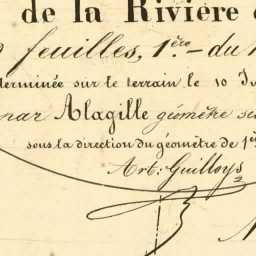 de la Rivière
feuilles, 1ère
terminée sur le terrain le 10
par Alagille géomètre se
sous la direction du géomètre de 1
Guilloys